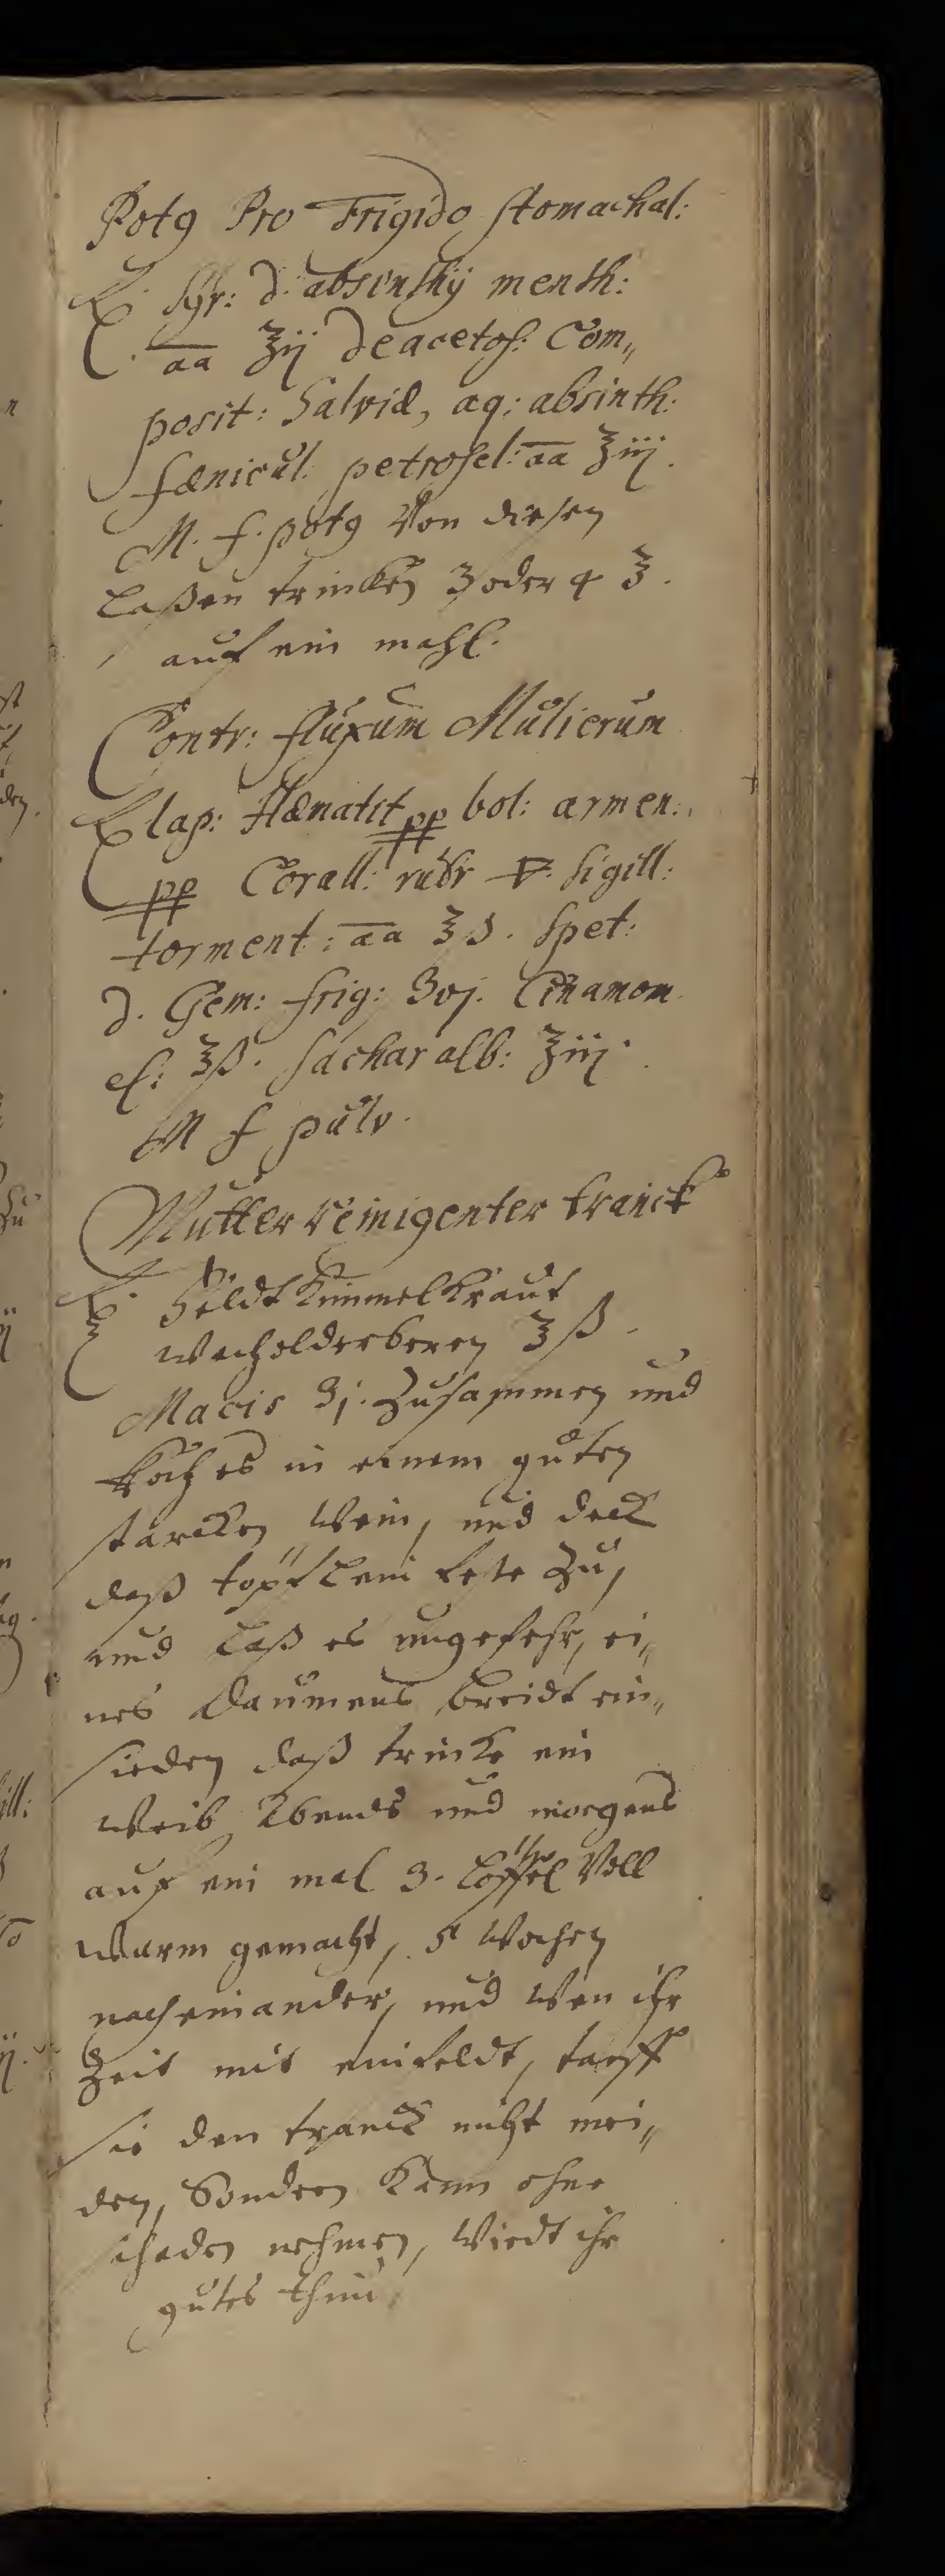 Potꝯ Pro Frigido stomachal:
℞. Syr: d. absinthÿ menth:
aa ʒij de acetos: Com„
posit: Salviæ, aq: absinth:
fænicul. petrosel: aa ℥iij.
M. f. potꝯ Von diesen
Laßen trincken 3 oder 4 ℥.
auf ein mahl.
Contr: fluxum Mulierum
℞ lap: Hæmatit pp bol: armen:
pp Corall: rubr 🜃. sigill:
torment: aa ʒß. Spet:
d. Gem: frig: ℈vj. Cinamom
el: ʒß. Sachar alb: ℥iij.
M f pulv.
Mutter reinigenter tranck
℞. Feldt Kimmel Kraut
Wacholderberen ℥ß.
Macis ʒj. Zusammen und
Koch es in einem guten
starcken Wein, und deck
daß töpflein feste Zu,
und Laß es ungefehr, ei„
nes Daumens breidt ein„
sieden daß trincke ein
Weib Abends und morgens
auf ein mal 3. Löffel Voll
Warm gemacht, 5 Wochen
nacheinander, und Wen ihr
Zeit mit einfeldt, tarff
sie den tranck nicht mei„
den, Sondern Kann ohne
schaden nehmen, Wirdt ihr
gutes thun.